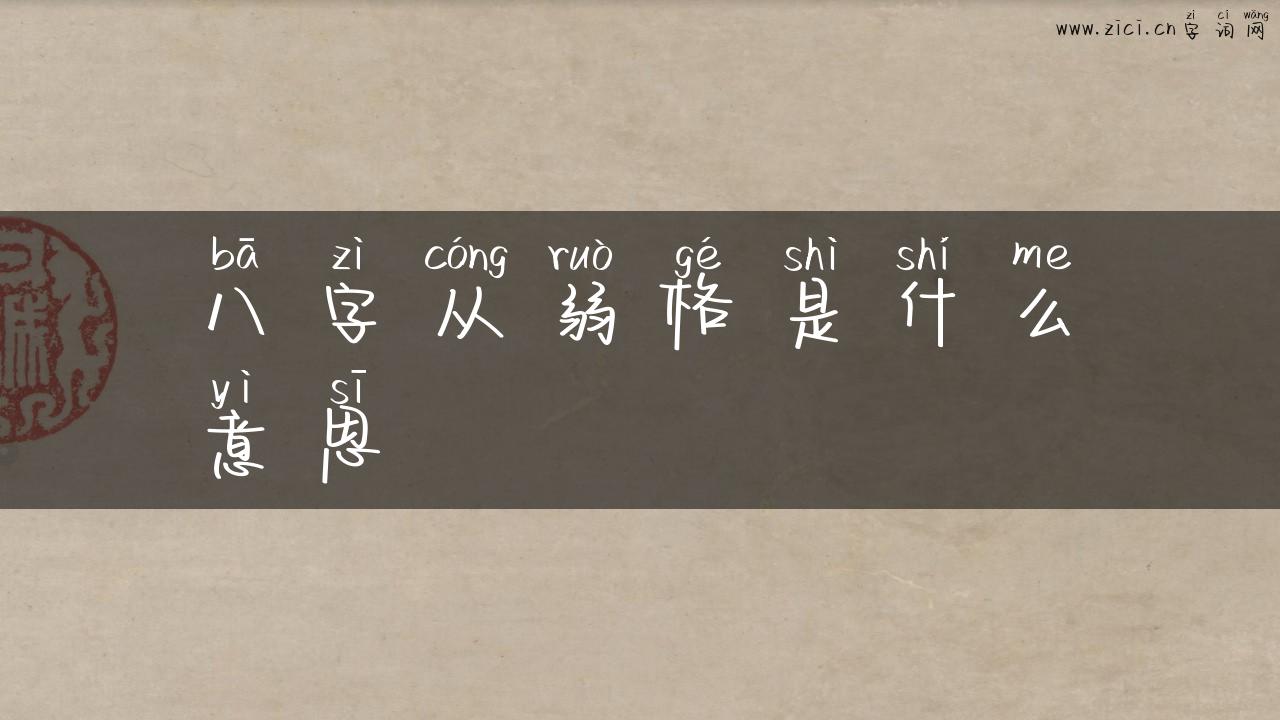 zì cí wǎng
www.zici.cn字词网
bā zì cóng ruò gé shì shí me
八字从弱格是什么
yì sī
意思